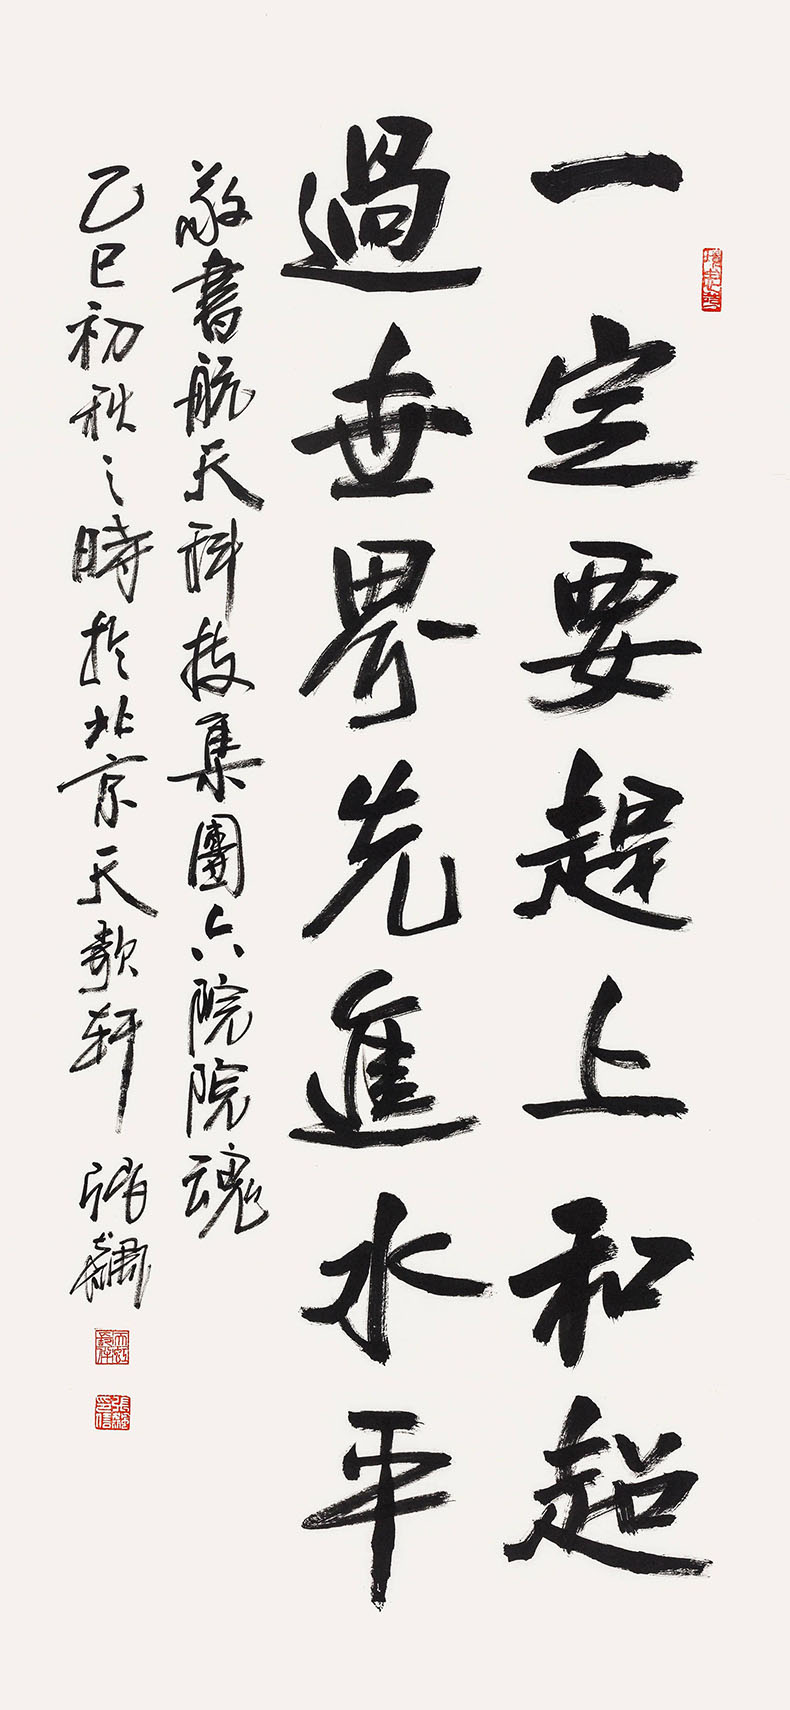 一定要趕上和超
過世界先進水平
敬書航天科技集團六院院魂
乙巳初秋之時於北京天歌軒 張飈